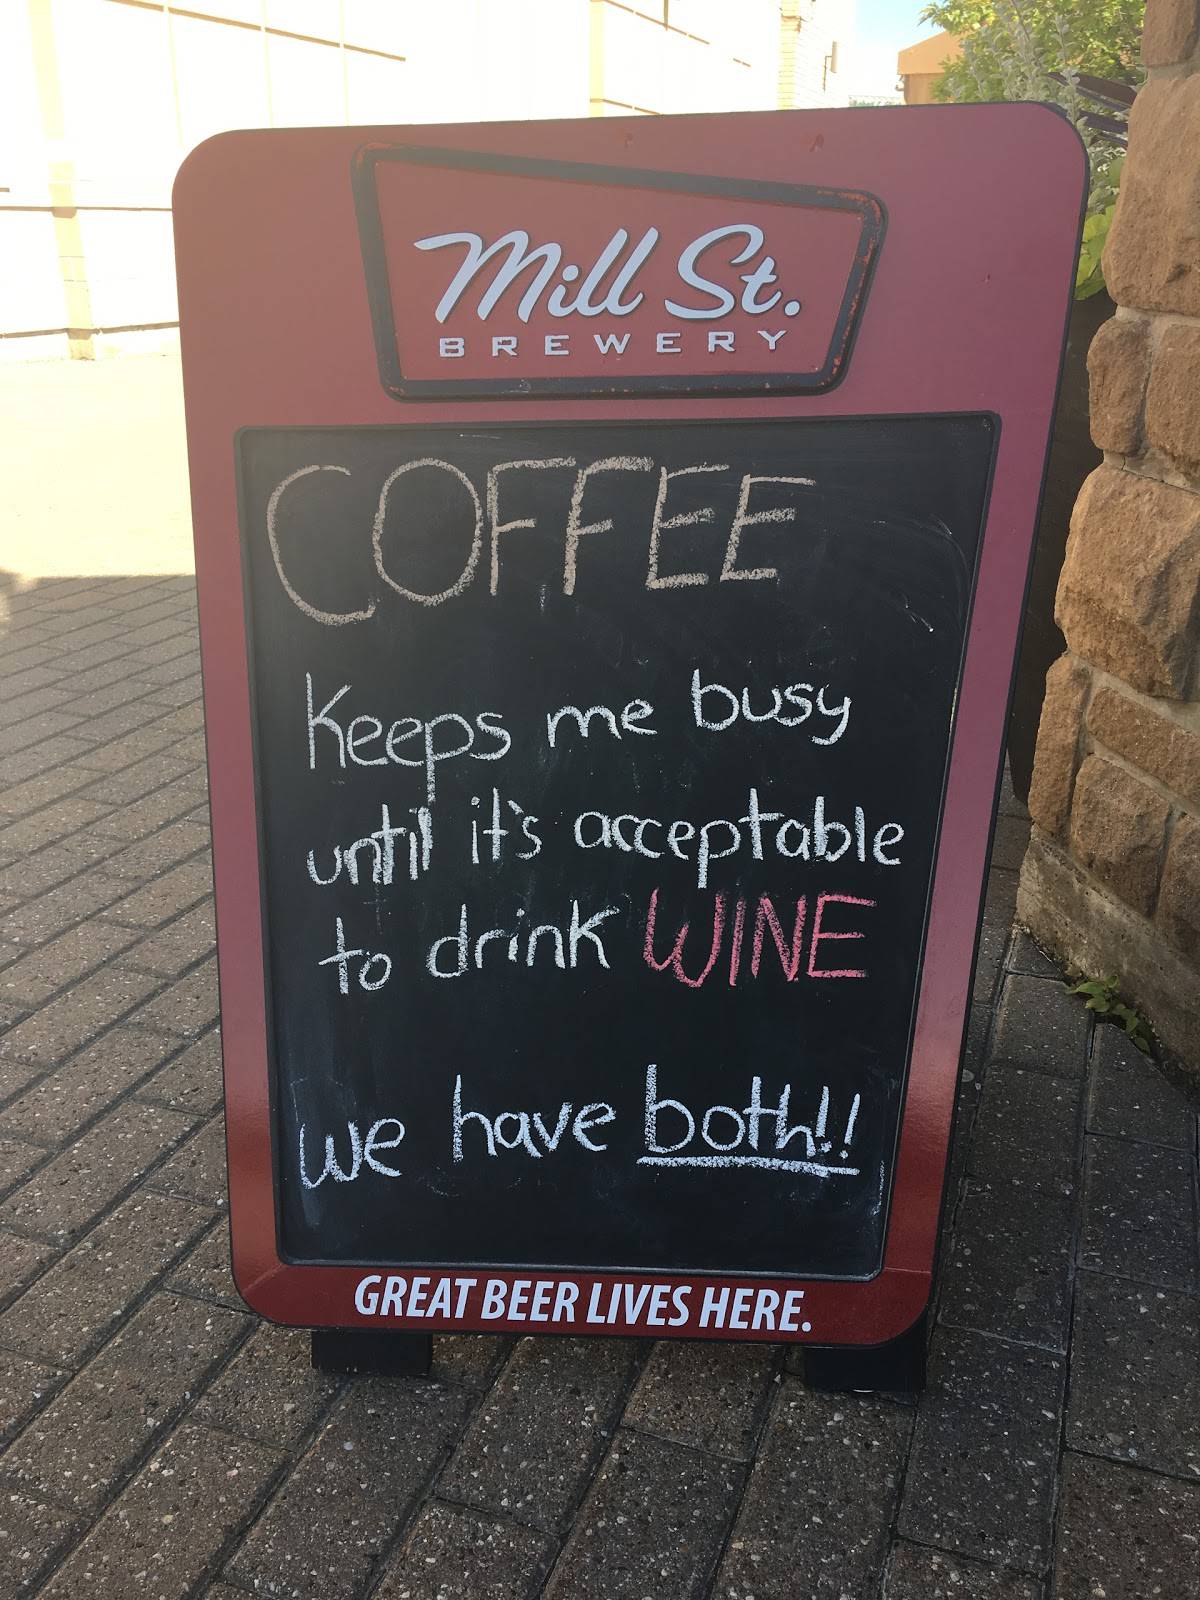 Mill St.
BREWERY
COFFEE
Keeps me busy
until it's acceptable
to drink WINE
We have both!!
GREAT BEER LIVES HERE.